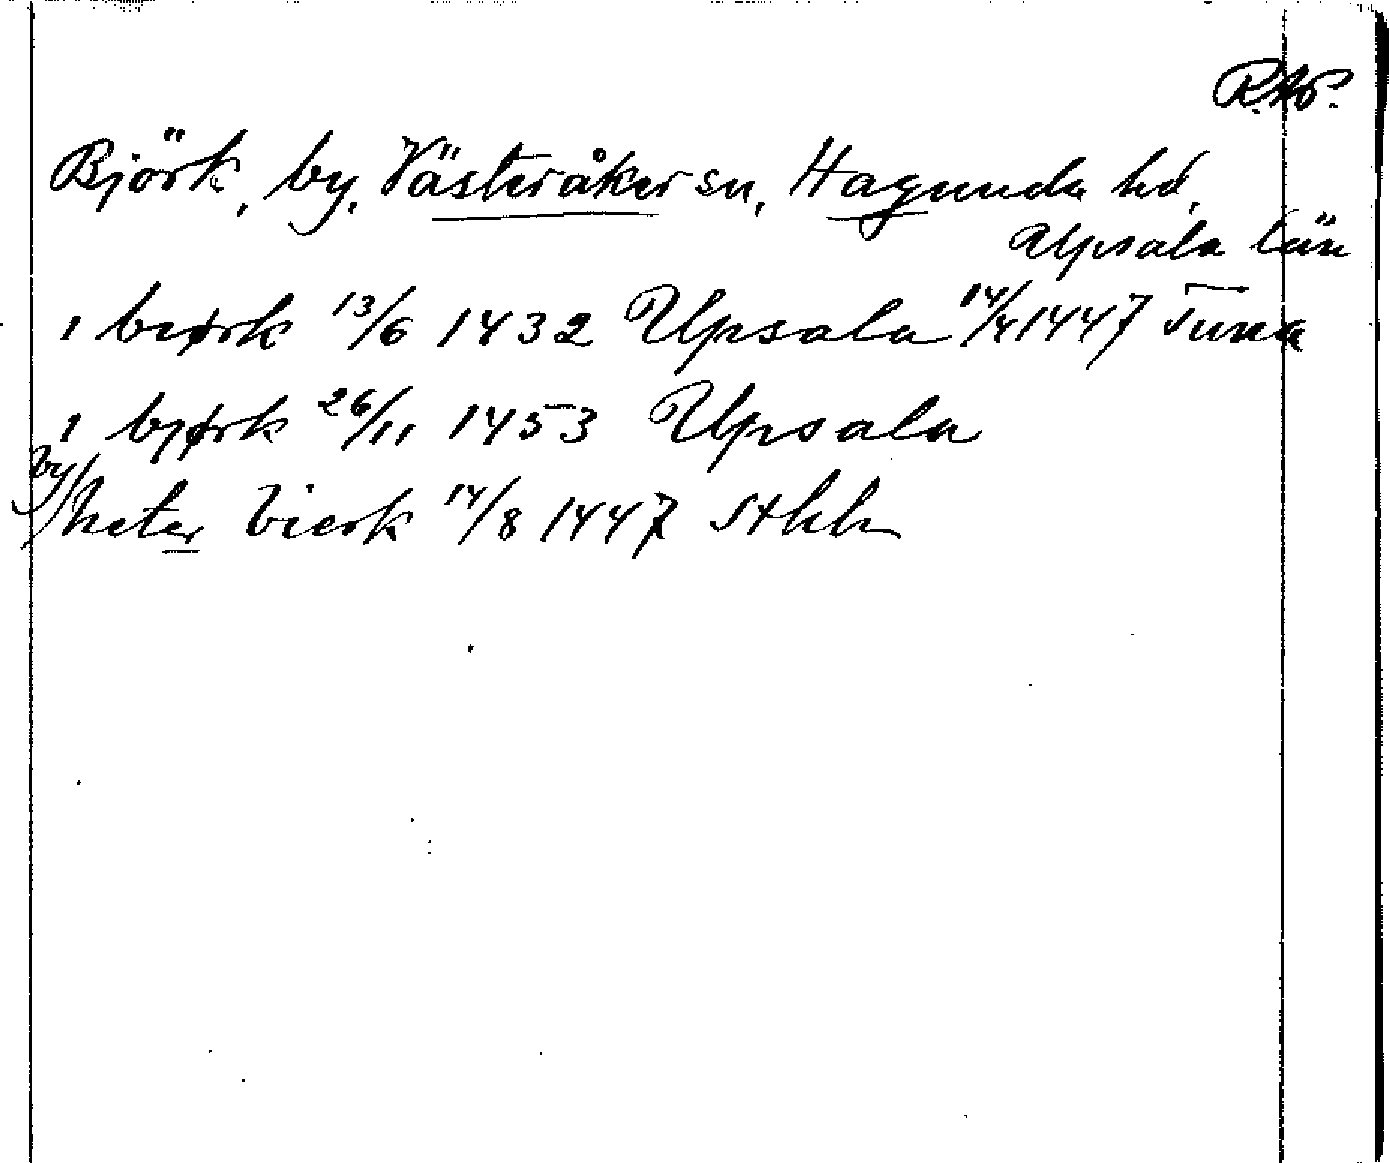 R.Ap.
Björk, by, Västeråker sn, Hagunda hd,
Upsala län
i biørk 13/6 1432 Upsala 14/4 1447 Tuna
i bjørk 26/11 1453 Upsala
by/heter bierk 14/8 1447 Sthlm